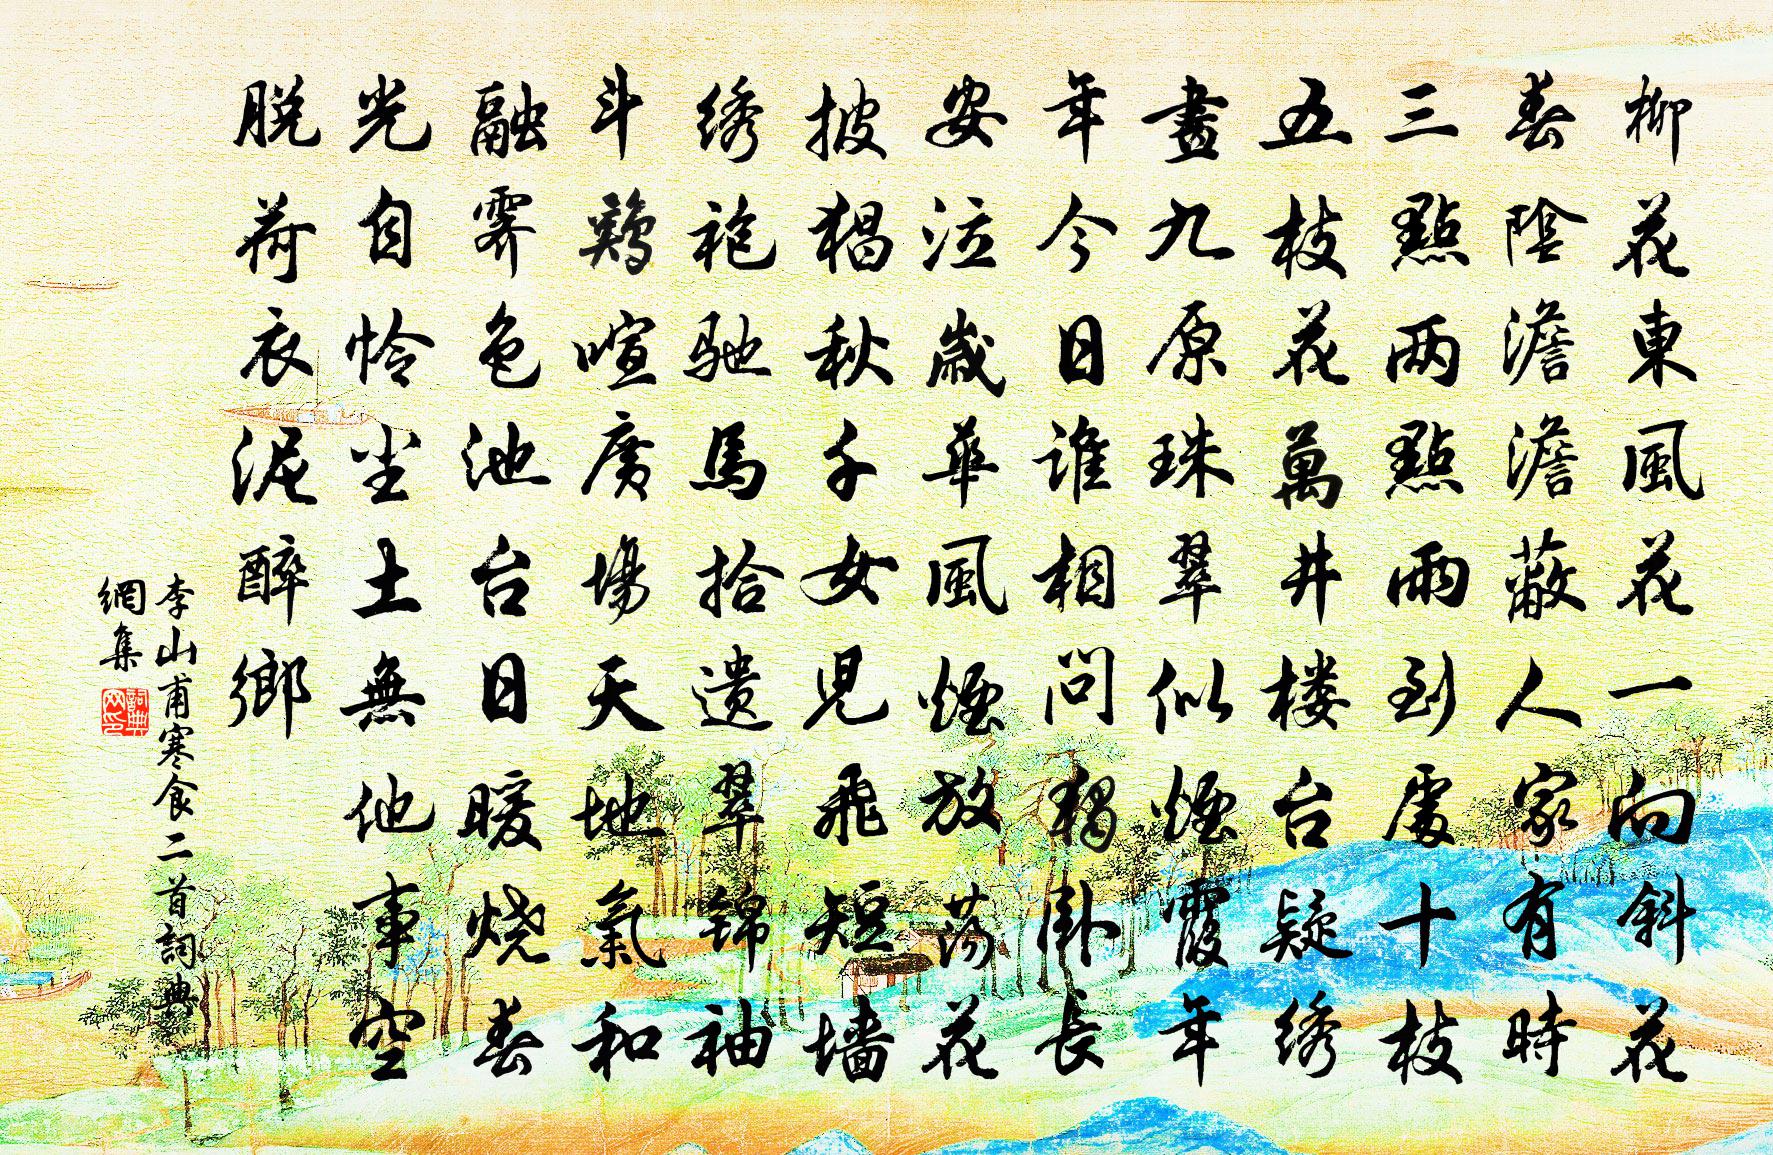 柳花東風花一向斜花
春陰澹澹蔽人家有時
三點两點雨到處十枝
五枝花萬井楼台疑绣
畫九原珠翠似煙霞年
年今日谁相問獨卧長
安泣歲華風煙放荡花
披猖秋千女兒飛短墙
绣袍驰馬拾遗翠錦袖
斗鷄喧廣場天地氣和
融霽色池台日暖烧春
光自怜尘土無他事空
脱荷衣泥醉鄉
李山甫寒食二首詞典
網集
詞典网印